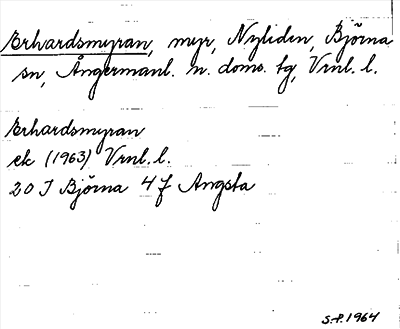 Erhardsmyran, myr, Nyliden, Björna
sn, Ångermanl. n. doms. tg, Vrnl. l.
Erhardsmyran
ek (1963) Vrnl. l.
20 J Björna 4 f Angsta
S.P. 1964